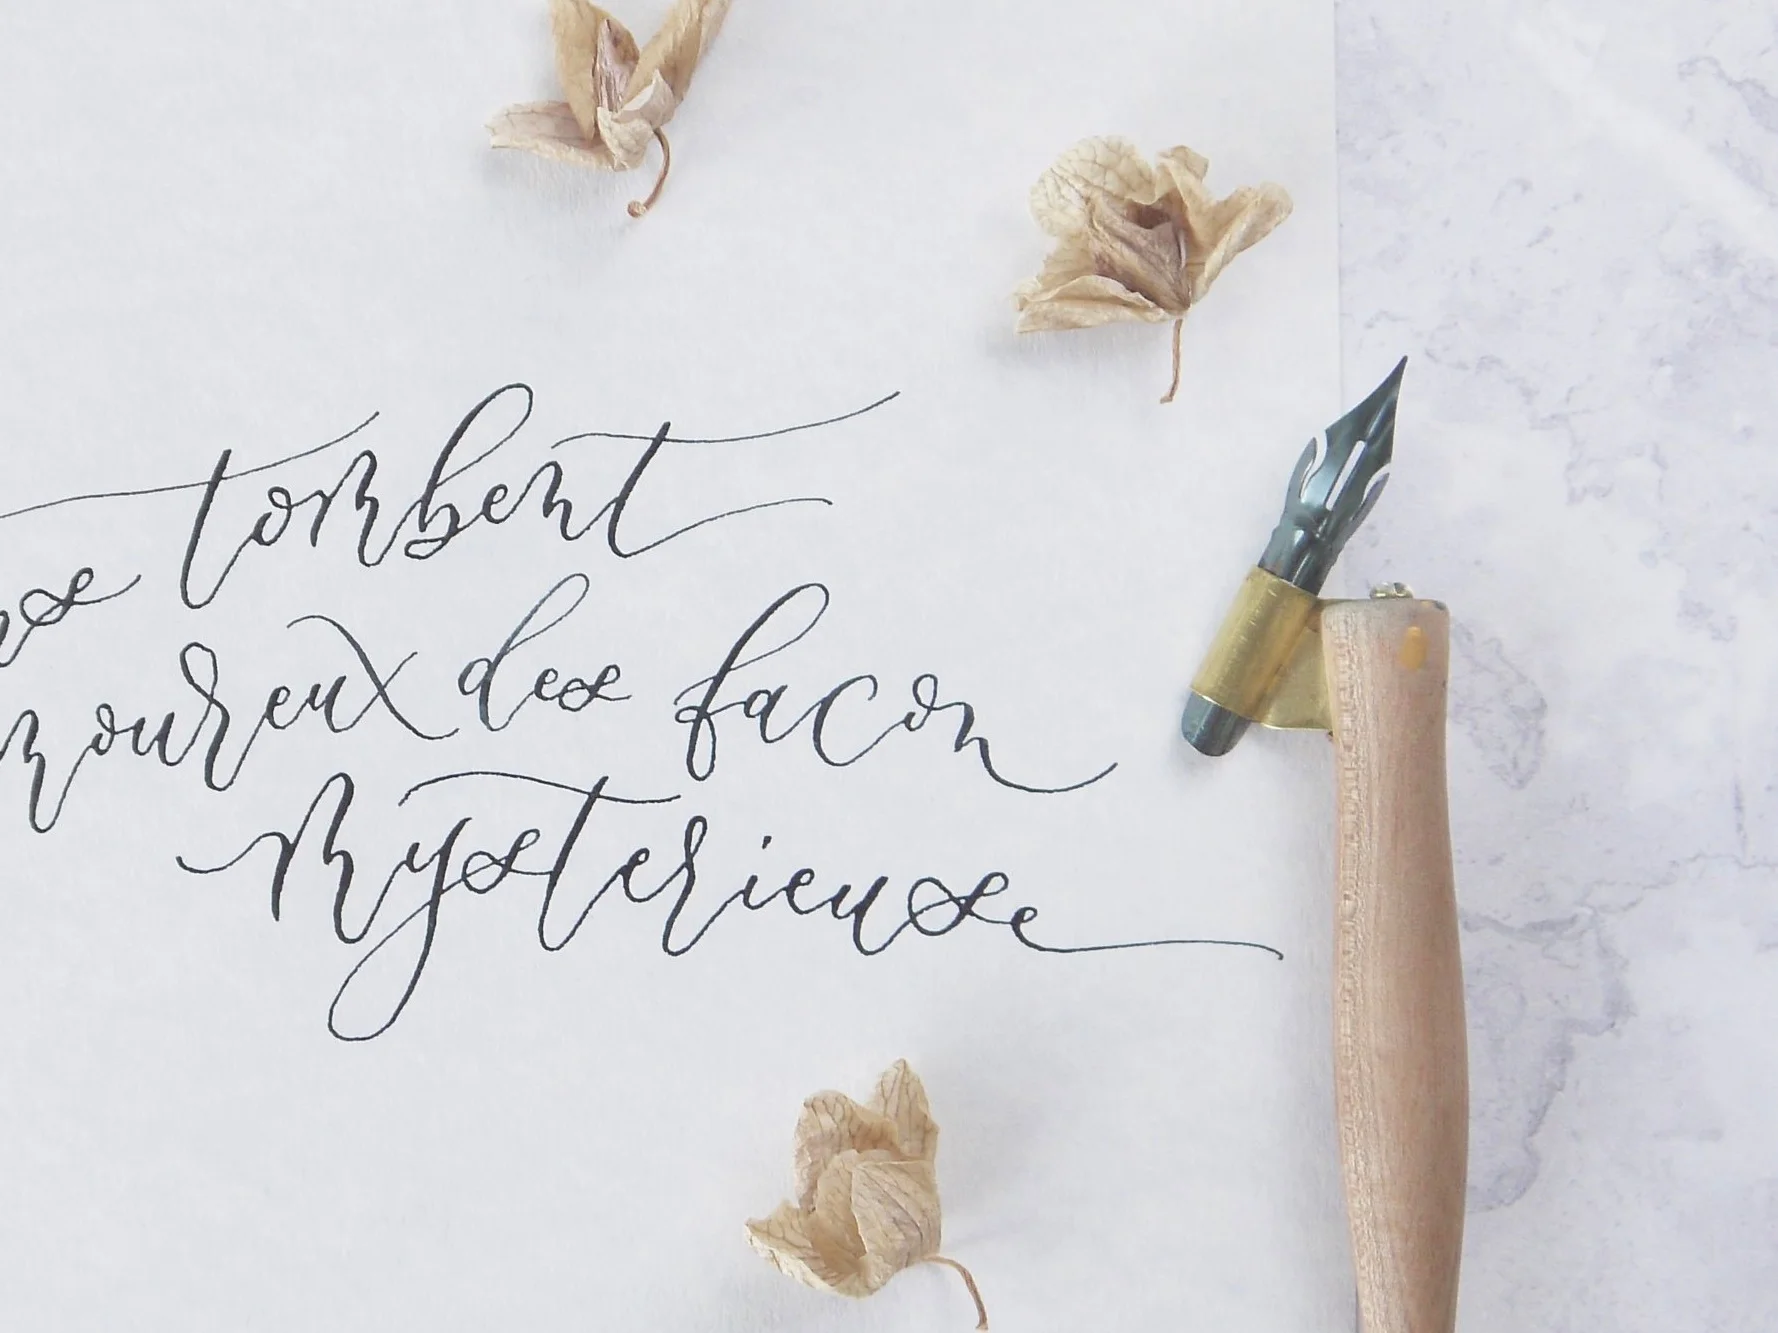 ns tombent
moureux des facon
mysterieuse